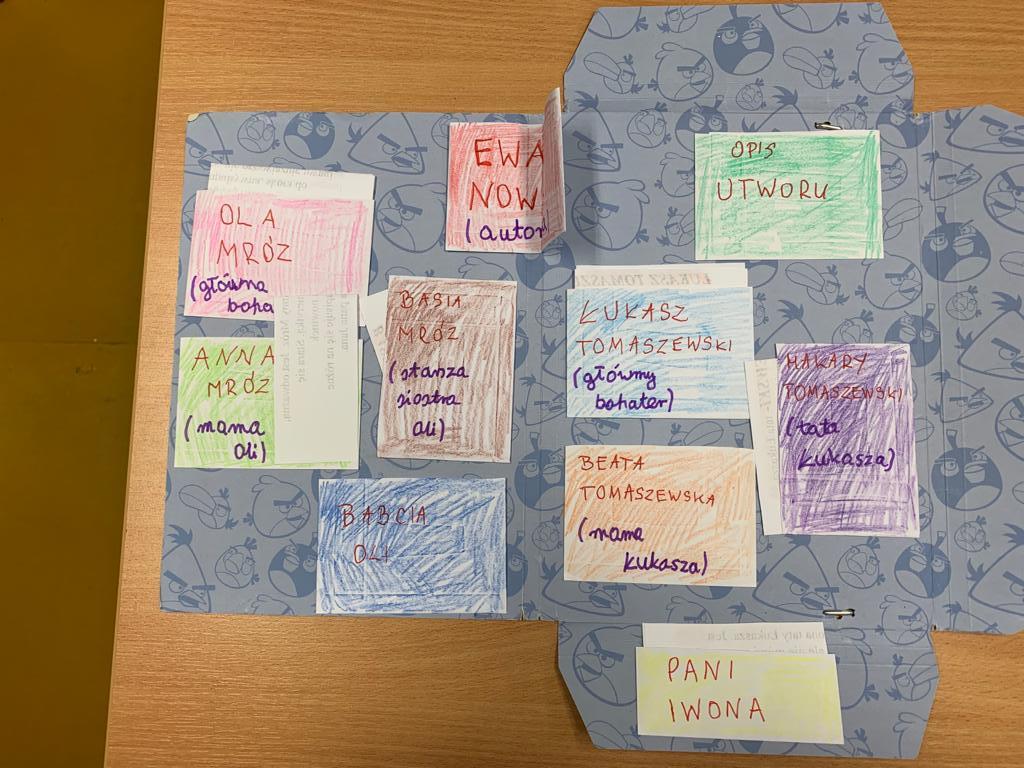 EWA
NOW
(autor
OPIS
UTWORU
OLA
MRÓZ
(główna
boha
ANNA
MRÓZ
(mama
Oli)
BASIA
MRÓZ
(starsza
siostra
Oli)
BABCIA
OLI
ŁUKASZ TOMASZ
ŁUKASZ
TOMASZEWSKI
(główny
bohater)
BEATA
TOMASZEWSKA
(mama
Łukasza)
MAKARY
TOMASZEWSKI
(tata
Łukasza)
ona taty Łukasza. Jest
PANI
IWONA